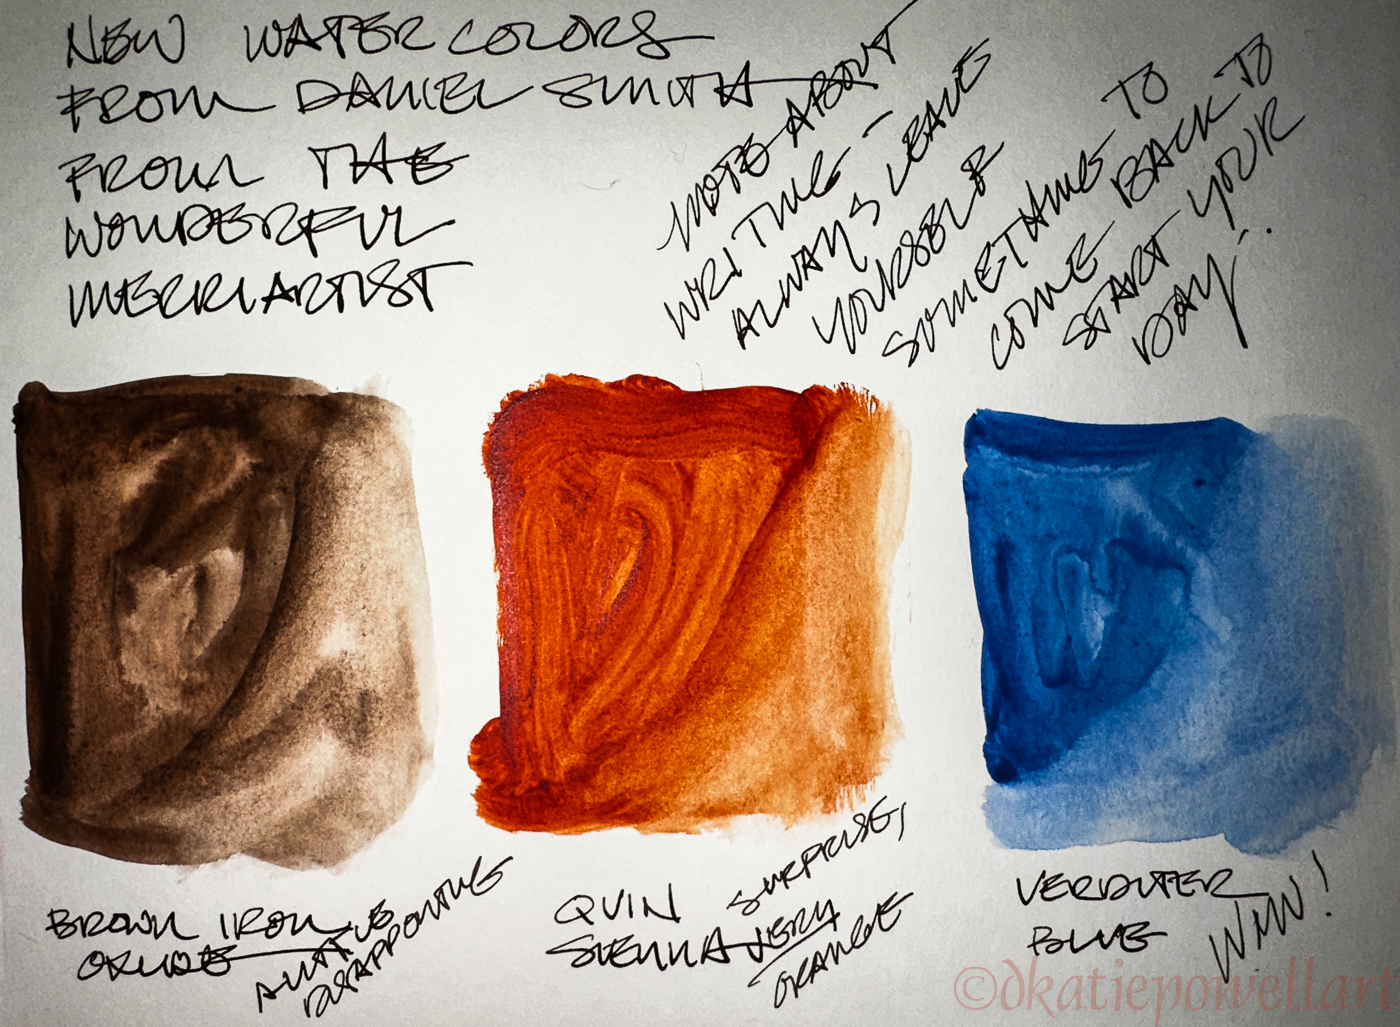 NEW WATERCOLORS
FROM DANIEL SMITH
FROM THE
WONDERFUL
MERRIARTIST
MORE ABOUT
WRITING –
ALWAYS LEAVE
YOURSELF
SOMETHING TO
COME BACK TO
START YOUR
DAY!
BROWN IRON
OXIDE
A LITTLE
DISAPPOINTING
QUIN
SIENNA
SURPRISE,
VERY
ORANGE
VERDITER
BLUE
WOW!
©dkatiepowellart